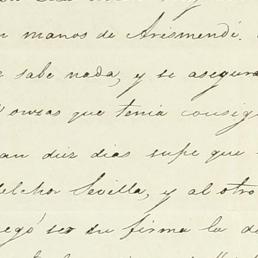 manos de Arismendi.
sabe nada, y se asegura
onzas que tenia consig
an diez dias supe que
elchor Sevilla, y al otro
egó ser su firma la d